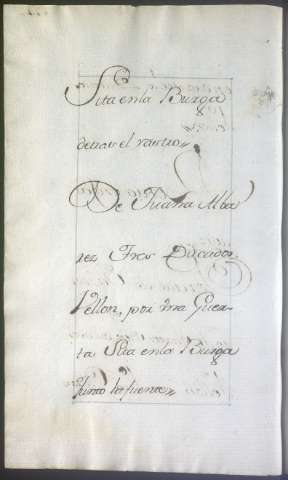 Sita en la Burga
detras el rastro
De Juana Alba
rez Tres Ducados
Vellon, por vna Guer-
ta Sita en la Burga
Junto la fuente